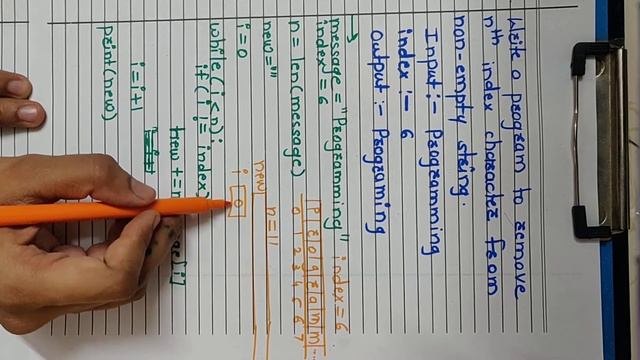 Write a program to remove
nth index character from
non-empty string.
Input :- Programming
index :- 6
Output :- Programing
→
message = "Programming" index = 6
index = 6
n = len(message)
P r o g r a m m ...
0 1 2 3 4 5 6 7
new = ""
n = 11
i = 0
new
while (i < n):
i 0
if (i != index)
new +=
[i]
i = i+1
print(new)